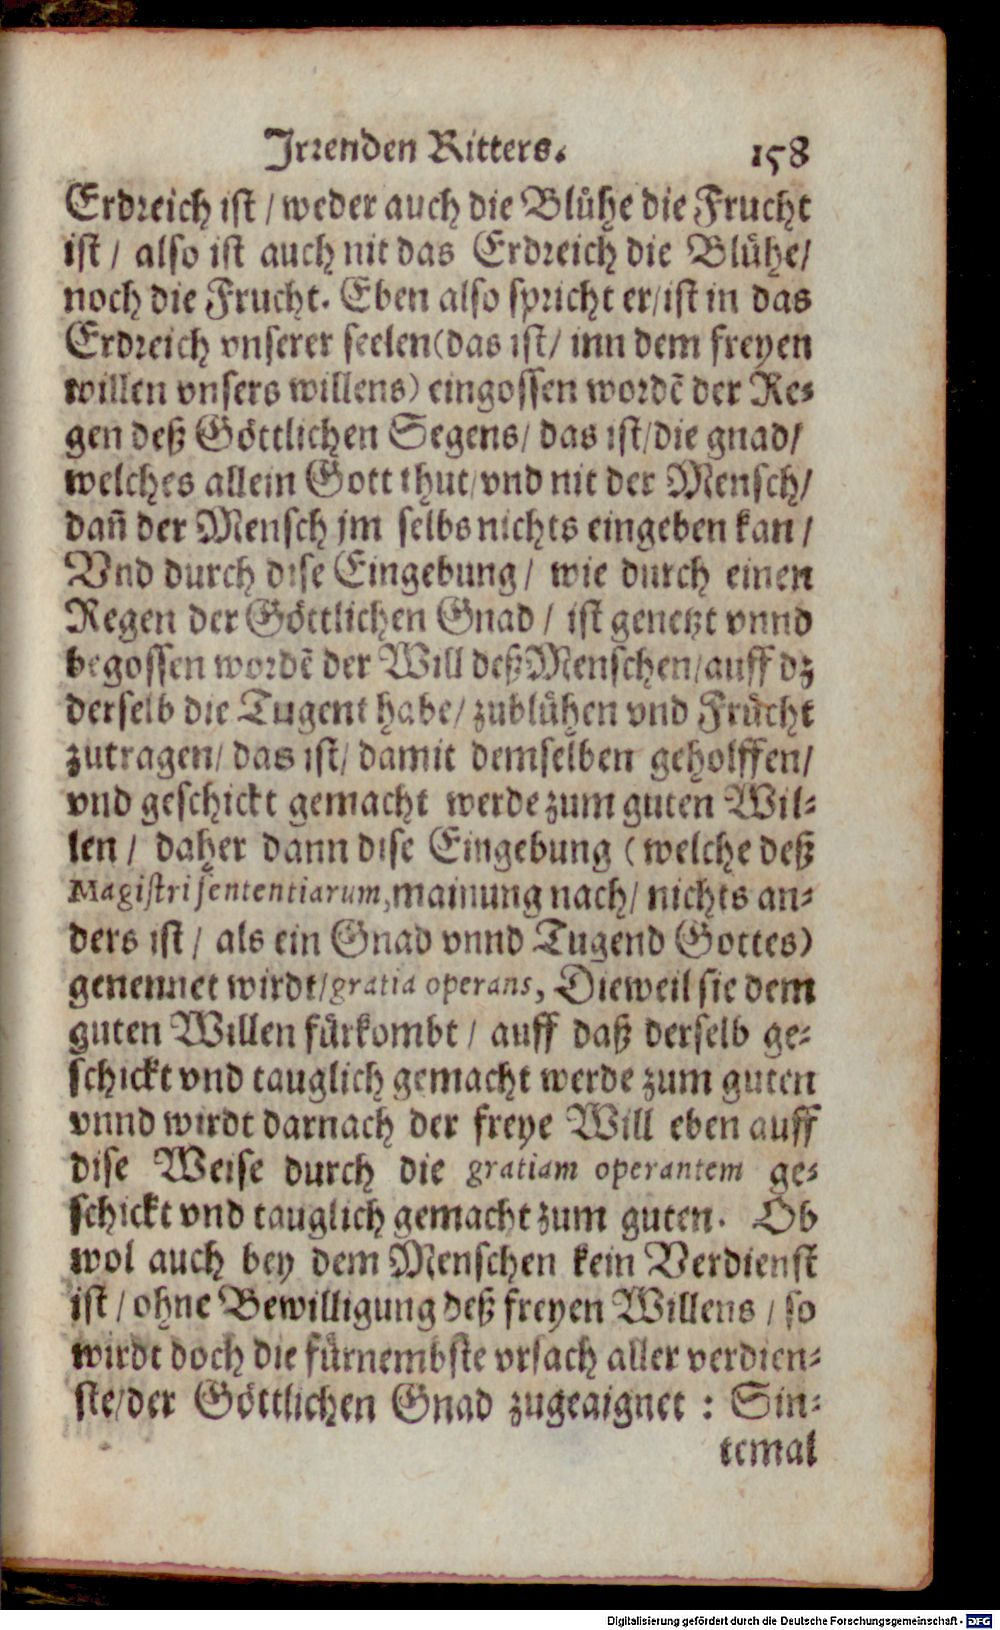 Irrenden Ritters. 158
Erdreich ist / weder auch die Blühe die Frucht
ist / also ist auch nit das Erdreich die Blühe/
noch die Frucht. Eben also spricht er/ist in das
Erdreich vnserer seelen(das ist/ inn dem freyen
willen vnsers willens) eingossen wordẽ der Re-
gen deß Göttlichen Segens/ das ist/die gnad/
welches allein Gott thut/vnd nit der Mensch/
dañ der Mensch jm selbs nichts eingeben kan /
Vnd durch dise Eingebung / wie durch einen
Regen der Göttlichen Gnad / ist genetzt vnnd
begossen wordẽ der Will deß Menschen/auff dz
derselb die Tugent habe/ zublühen vnd Frücht
zutragen/ das ist/ damit demselben geholffen/
vnd geschickt gemacht werde zum guten Wil-
len / daher dann dise Eingebung (welche deß
Magistri sententiarum, mainung nach/ nichts an-
ders ist / als ein Gnad vnnd Tugend Gottes)
genennet wirdt/gratia operans, Dieweil sie dem
guten Willen fürkombt / auff daß derselb ge-
schickt vnd tauglich gemacht werde zum guten
vnnd wirdt darnach der freye Will eben auff
dise Weise durch die gratiam operantem ge-
schickt vnd tauglich gemacht zum guten. Ob
wol auch bey dem Menschen kein Verdienst
ist / ohne Bewilligung deß freyen Willens / so
wirdt doch die fürnembste vrsach aller verdien-
ste/der Göttlichen Gnad zugeaignet : Sin-
temal
Digitalisierung gefördert durch die Deutsche Forschungsgemeinschaft - DFG